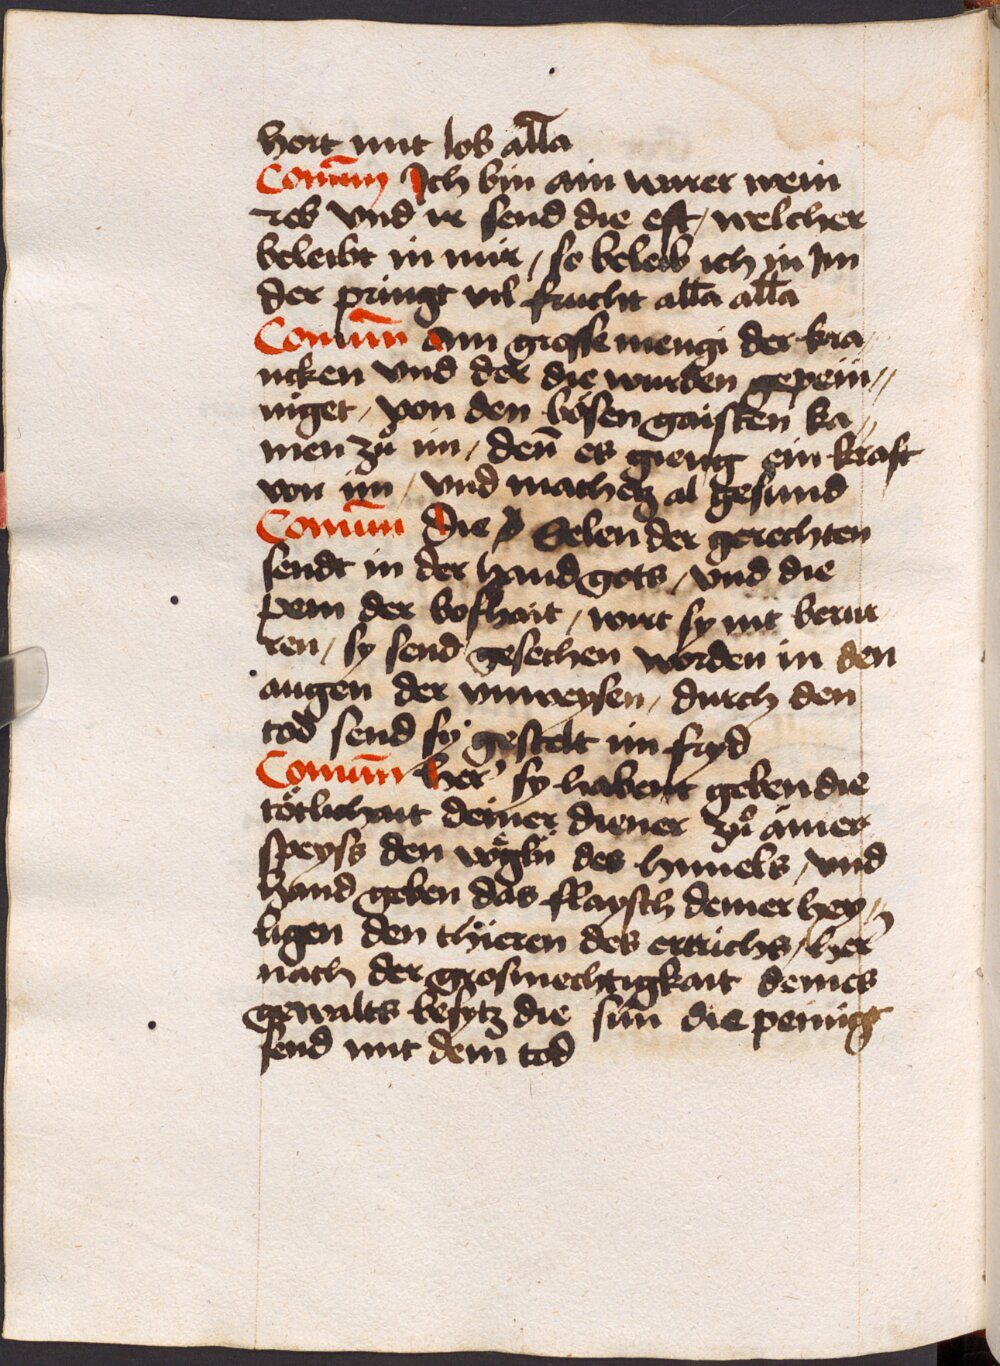 hort mit lob alla͞
Comu͞n Ich bin ain warer wein
reb vnd ir send die est / welcher
beleibt in mir / so beleib ich in Im
der pringt vil frucht alla͞ alla͞
Comu͞n Ain grosse mengi der kra
ncken vnd der die wurden gepein〃
niget / von den bösen gaisten ka〃
men zů im / den͞ es gieng ein kraft
von im / vnd machetz al gesund
Comu͞n Die Selen der gerechten
sendt in der hand gots / vnd die
pein der boshait / wirt sy nit berür
ren / sy send gesechen worden in den
augen der vnweysen / durch den
tod send sy gestelt im fryd
Comu͞n her͛ sy habent geben die
tötlichait deiner diener zů ainer
speyss den vögln des himels / vnd
hand geben das flaysch deiner hey〃
ligen den thieren des ertrichs / her͛
nach der grosmechtigkait deines
gewalts besytz die sün die peinigg
send mit dem tod